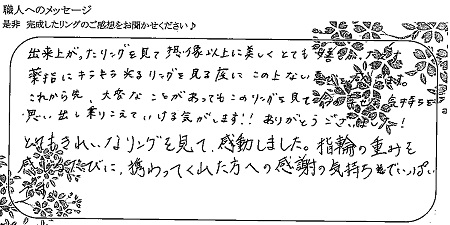 職人へのメッセージ
是非 完成したリングのご感想をお聞かせください♪
出来上がったリングを見て想像以上に美しくとても
薬指にキラキラ光るリングを見る度にこの上ない
これから先、大変なことがあってもこのリングを見て
思い出し乗りこえていける気がします!! ありがとうござい
とてもきれいなリングを見て、感動しました。指輪の重みを
たびに、携わってくれた方への感謝の気持ちでいっぱい